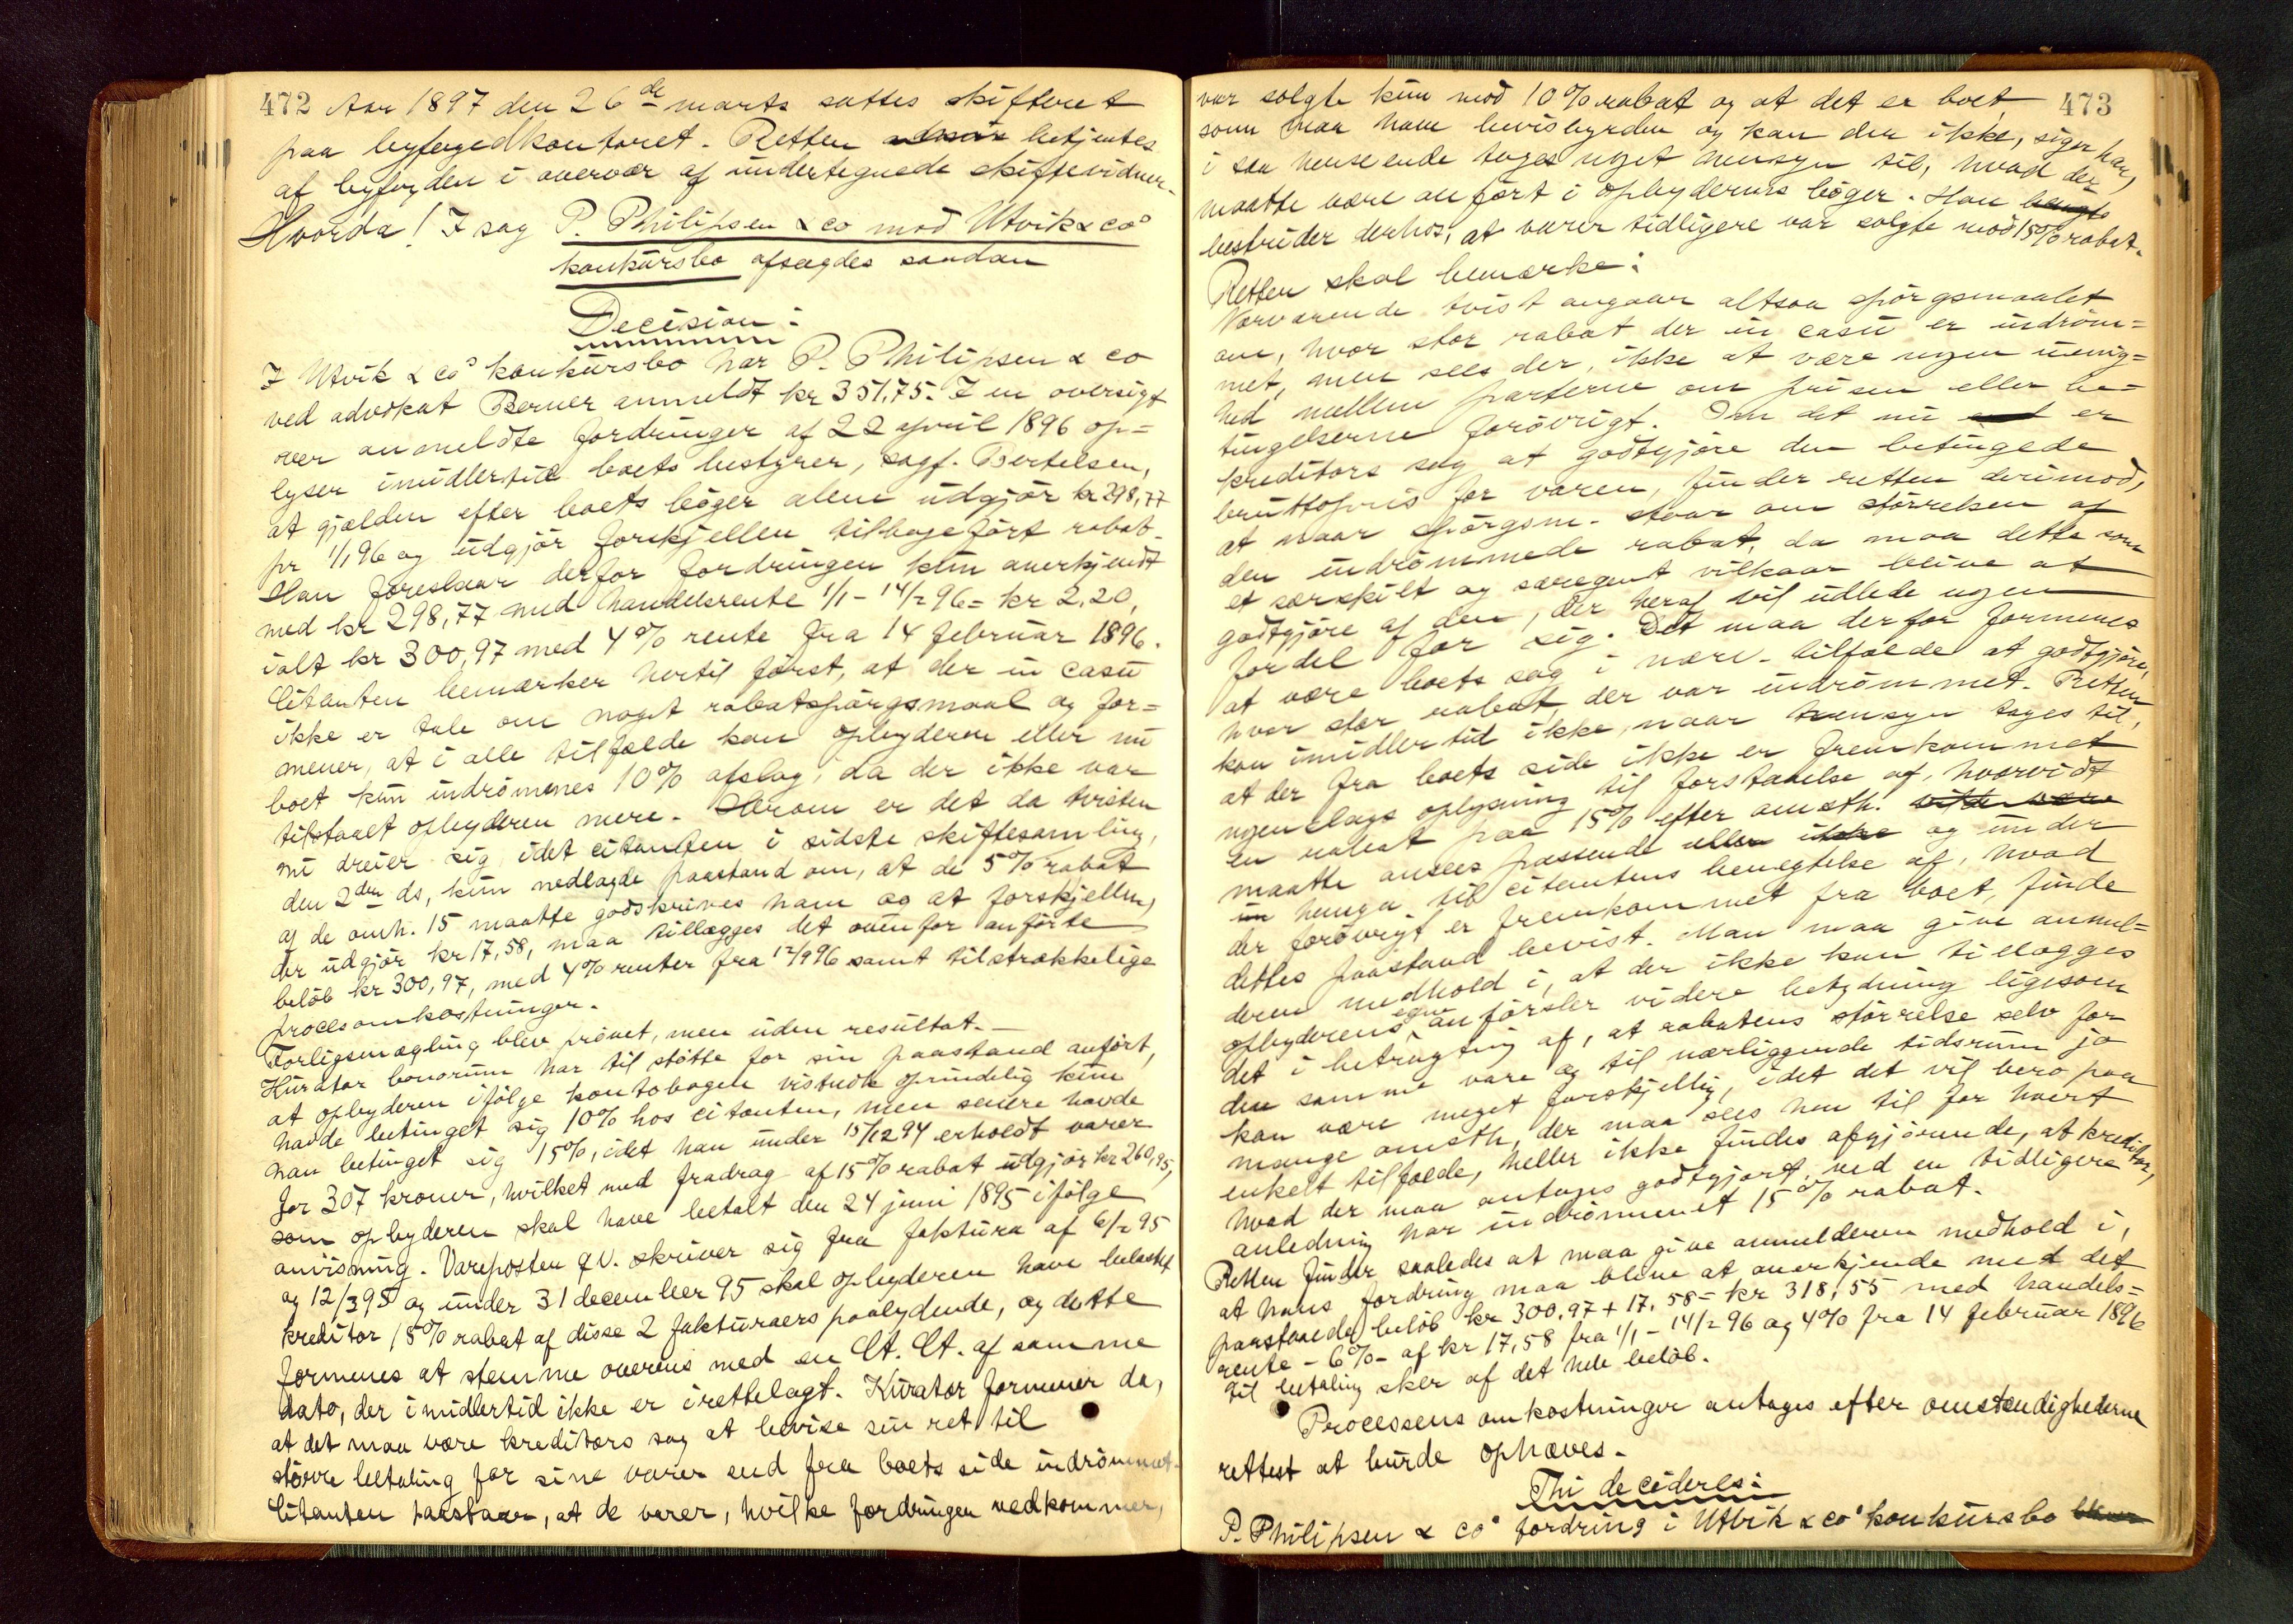 472 Aar 1897 den 26de marts sattes skifteret
paa byfogedkontoret. Retten betjentes
af byfogden i overvær af undertegnede skiftevidner.
Hvorda! I sag P. Philipsen & co mod Utvik & co's
konkursbo afsagdes saadan
Decision:
I Utvik & co's konkursbo har P. Philipsen & co
ved advokat Berner anmeldt kr 351,75. I en oversigt
over anmeldte fordringer af 22 april 1896 op=
lyser imidlertid boets bestyrer, sagf. Bertelsen,
at gjælden efter boets bøger alene udgjør kr 298,77
pr 1/1 96 og udgjør forskjellen tilbageført rabat.
Han foreslaar derfor fordringen kun anerkjendt
med kr 298,77 med handelsrente 1/1 - 14/2 96 = kr 2.20,
ialt kr 300,97 med 4% rente fra 14 februar 1896.
Citanten bemærker hertil først, at der in casu
ikke er tale om noget rabatspørgsmaal og for=
mener, at i alle tilfælde kan opbyderen eller nu
boet kun indrømmes 10% afslag, da der ikke var
tilstaaet opbyderen mere. Herom er det da tvisten
nu dreier sig, idet citanten i sidste skiftesamling,
den 2den ds, kun nedlagde paastand om, at de 5% rabat
af de omh. 15 maatte godskrives ham og at forskjellen,
der udgjør kr 17,58, maa tillægges det ovenfor anførte
beløb kr 300,97, med 4% renter fra 14/2 96 samt tilstrækkelige
procesomkostninger.
Forligsmægling blev prøvet, men uden resultat.-
Kurator bonorum har til støtte for sin paastand anført,
at opbyderen ifølge kontobogen vistnok oprindelig kun
havde betinget sig 10% hos citanten, men senere havde
han betinget sig 15%, idet han under 15/12 94 erholdt varer
for 307 kroner, hvilket med fradrag af 15% rabat udgjør kr 260,95,
som opbyderen skal have betalt den 24 juni 1895 ifølge
anvisning. Vareposten qv. skriver sig fra faktura af 6/2 95
og 12/3 95 og under 31 december 95 skal opbyderen have belastet
kreditor 15% rabat af disse 2 fakturaers paalydende, og dette
formenes at stemme overens med en Ct. Ct. af samme
dato, der imidlertid ikke er irettelagt. Kurator formener da,
at det maa være kreditors sag at bevise sin ret til
større betaling for sine varer end fra boets side indrømmet.
Citanten paastaar, at de varer, hvilke fordringen vedkommer,
473
var solgte kun mod 10% rabat og at det er boet,
som maa have bevisbyrden og kan der ikke, siger han,
i saa henseende tages noget hensyn til, hvad der
maatte være anført i opbyderens bøger. Han
bestrider derhos, at varer tidligere var solgte mod 15% rabat.
Retten skal bemærke:
Nærværende tvist angaar altsaa spørgsmaalet
om, hvor stor rabat der in casu er indrøm=
met, men sees der ikke at være nogen uenig=
hed mellem parterne om prisen eller be=
tingelserne forøvrigt. Om det nu er
kreditors sag at godtgjøre den betingede
bruttopris for varen, finder retten derimod,
at naar spørgsm. staar om størrelsen af
den indrømmede rabat, da maa dette som
et særskilt og særegent vilkaar blive at
godtgjøre af den, der heraf vil udlede nogen
fordel for sig. Det maa derfor formenes
at være boets sag i nærv. tilfælde at godtgjøre,
hvor stor rabat, der var indrømmet. Retten
kan imidlertid ikke, naar hensyn tages til,
at der fra boets side ikke er fremkommet
nogenslags oplysning til forstaaelse af, hvorvidt
en rabat paa 15% efter omsth.
maatte ansees passende og under
hensyn til citantens benegtelse af, hvad
der forøvrigt er fremkommet fra boet, finde
dettes paastand bevist. Man maa give anmel=
deren medhold i, at der ikke kan tillægges
opbyderens egne anførsler videre betydning ligesom
det i betragtning af, at rabatens størrelse selv for
den samme vare og til nærliggende tidsrum jo
kan være meget forskjellig, idet det vil bero paa
mange omsth, der maa sees hen til for hvert
enkelt tilfælde, heller ikke findes afgjørende, at kreditor,
hvad der maa antages godtgjort, ved en tidligere
anledning har indrømmet 15% rabat.
Retten finder saaledes at maa give anmelderen medhold i,
at hans fordring maa blive at anerkjende med det
paastaaede beløb kr 300.97 + 17.58 = kr 318,55 med handels=
rente - 6% - af kr 17,58 fra 1/1 - 14/2 96 og 4% fra 14 februar 1896
til betaling sker af det hele beløb.
Processens omkostninger antages efter omstændighederne
rettest at burde ophæves.
Thi decideres:
P. Philipsen & co's fordring i Utvik & co's konkursbo